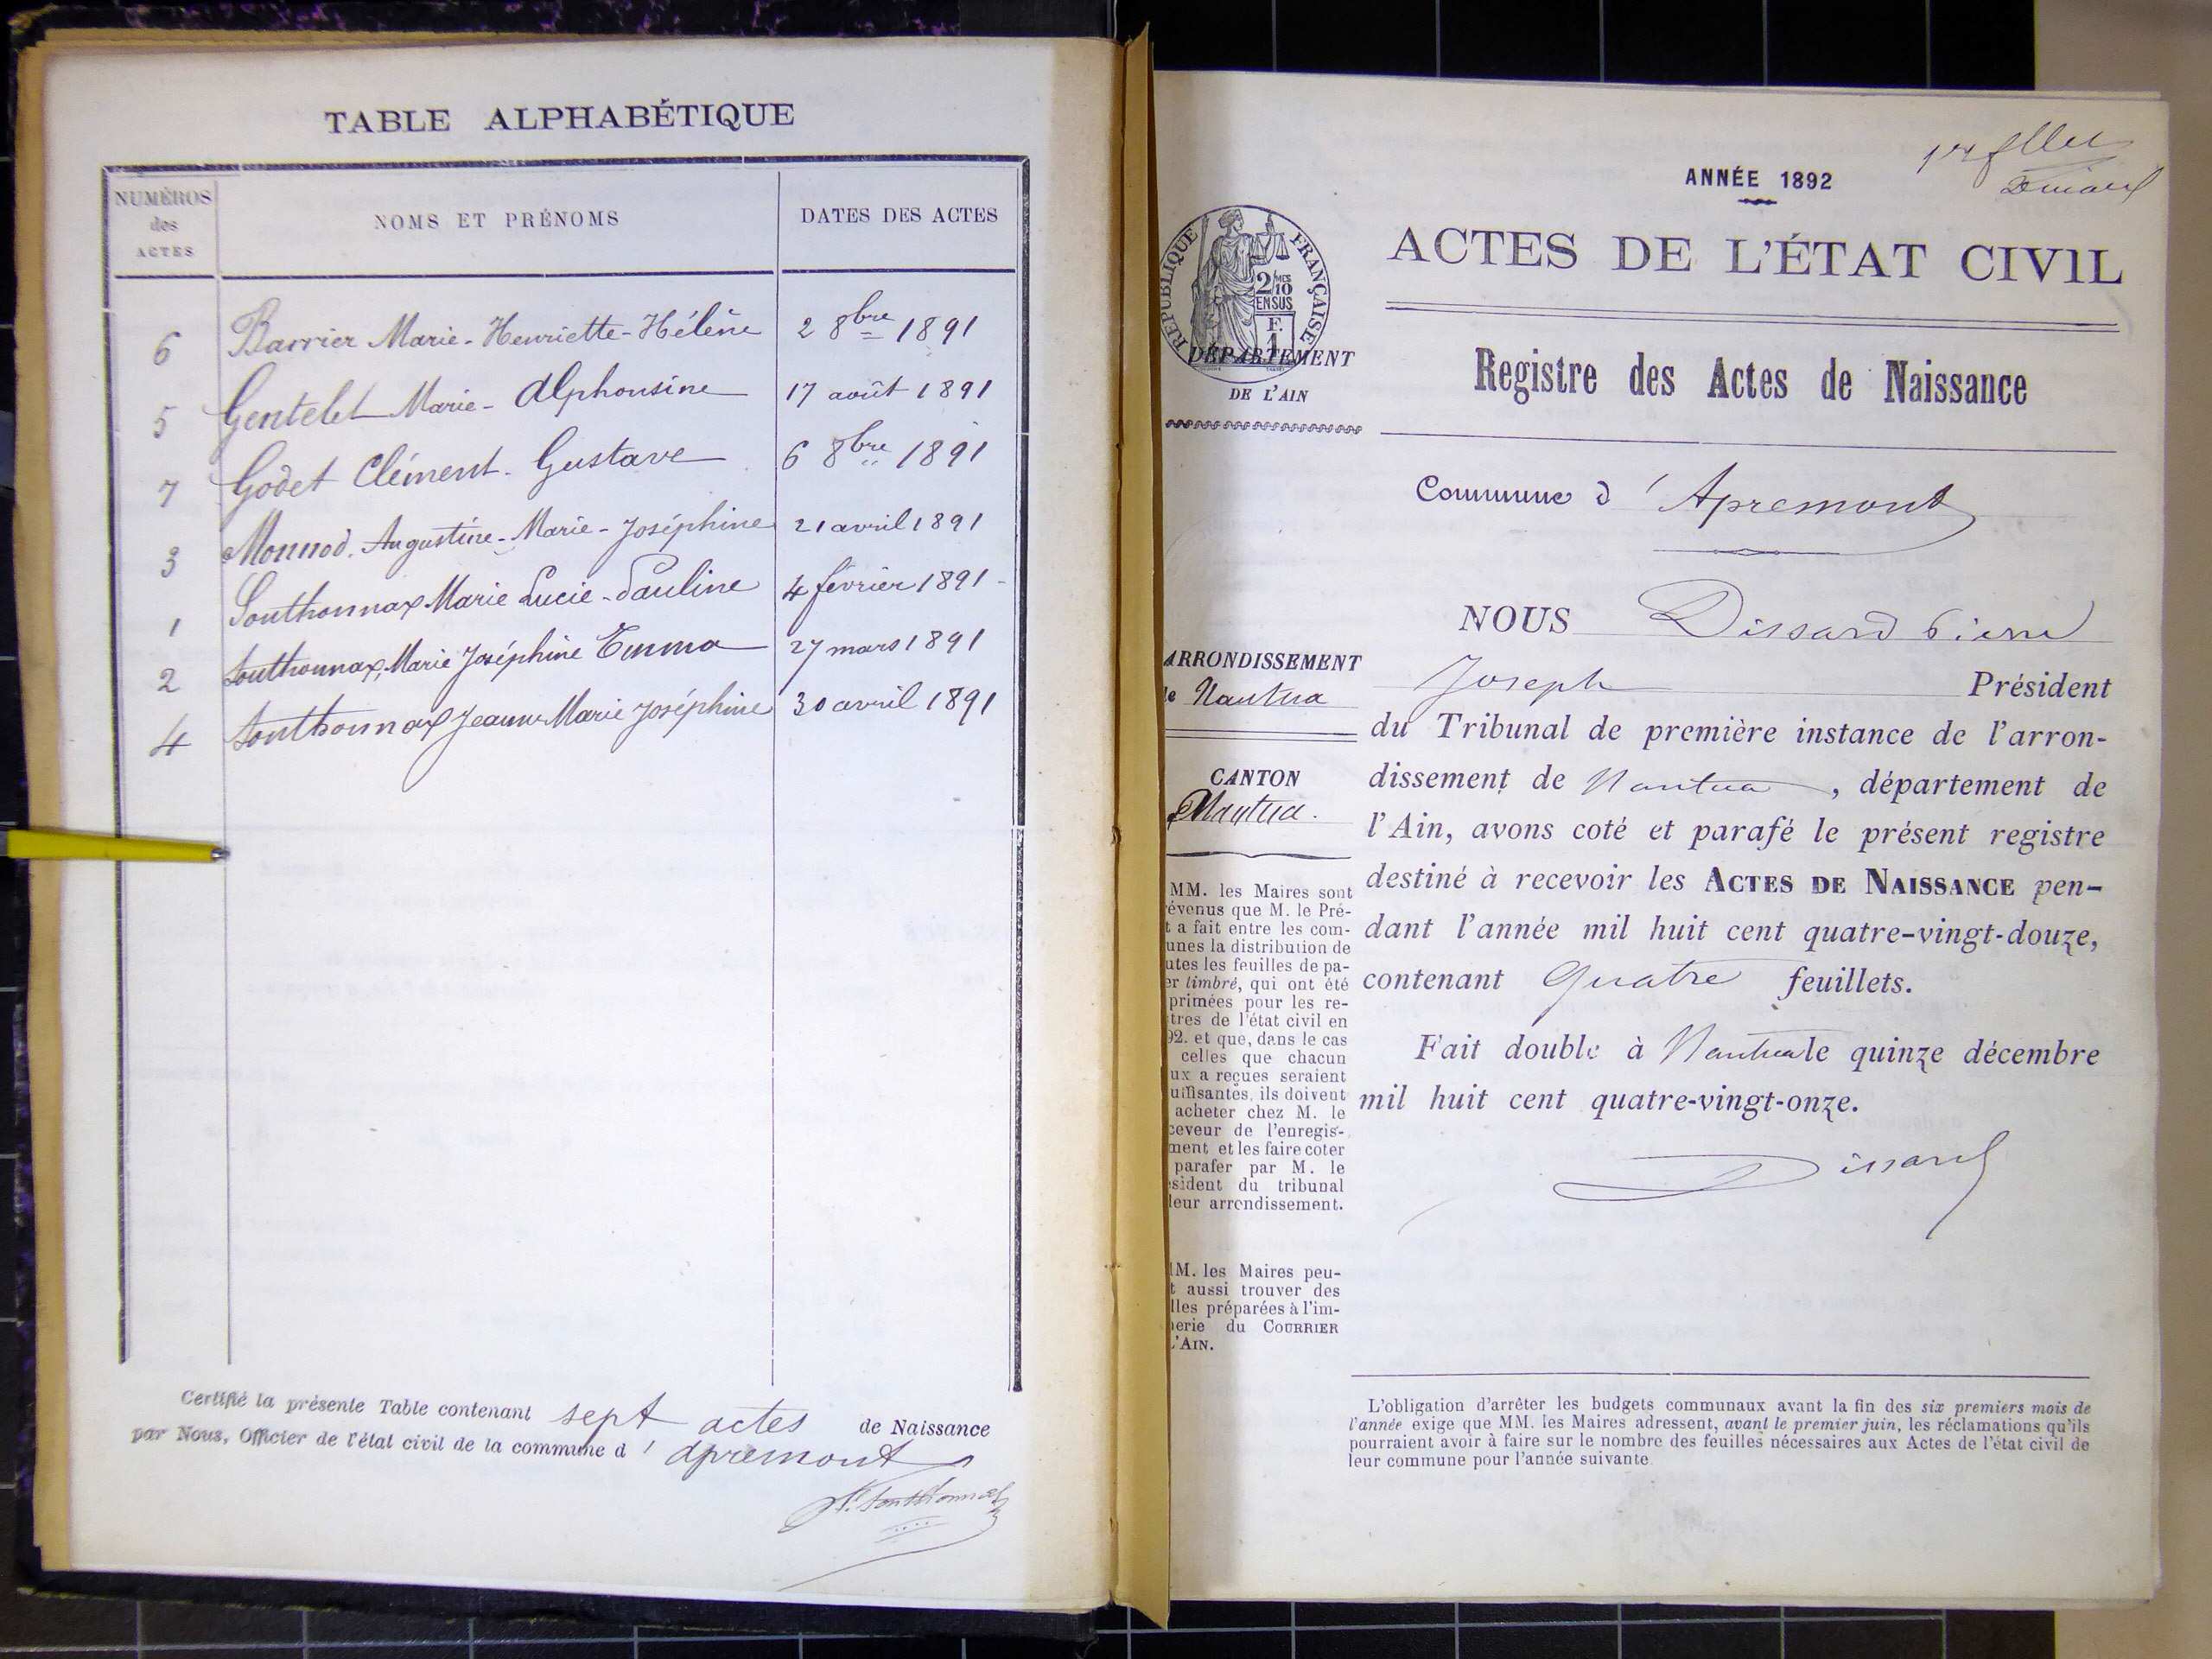 TABLE ALPHABÉTIQUE
NUMÉROS des ACTES
NOMS ET PRÉNOMS
DATES DES ACTES
6 Barrier Marie-Henriette-Hélène 2 8bre 1891
5 Gentelet Marie-Alphonsine 17 août 1891
7 Godet Clément-Gustave 6 8bre 1891
3 Monnod. Augustine-Marie-Joséphine 21 avril 1891
1 Southonnax Marie Lucie-Pauline 4 février 1891
2 Southonnax, Marie Joséphine Emma 27 mars 1891
4 Southonnax Jeanne Marie Joséphine 30 avril 1891
Certifié la présente Table contenant sept actes de Naissance
par Nous, Officier de l'état civil de la commune d'apremont
Southonnax
1er fllet
Dissard
ANNÉE 1892
RÉPUBLIQUE FRANÇAISE
2/10MES
EN SUS
F.
1
ACTES DE L'ÉTAT CIVIL
DÉPARTEMENT
DE L'AIN
Registre des Actes de Naissance
Commune d'Apremont
ARRONDISSEMENT
de Nantua
CANTON
Nantua.
NOUS Dissard Pierre
Joseph Président
du Tribunal de première instance de l'arron-
dissement de Nantua, département de
l'Ain, avons coté et parafé le présent registre
destiné à recevoir les ACTES DE NAISSANCE pen-
dant l'année mil huit cent quatre-vingt-douze,
contenant Quatre feuillets.
Fait double à Nantua le quinze décembre
mil huit cent quatre-vingt-onze.
Dissard
MM. les Maires sont
évenus que M. le Pré-
t a fait entre les com-
unes la distribution de
utes les feuilles de pa-
er timbré, qui ont été
primées pour les re-
tres de l'état civil en
92. et que, dans le cas
celles que chacun
ux a reçues seraient
uffisantes, ils doivent
acheter chez M. le
ceveur de l'enregis-
ment et les faire coter
parafer par M. le
sident du tribunal
leur arrondissement.
MM. les Maires peu-
t aussi trouver des
lles préparées à l'im-
erie du COURRIER
L'AIN.
L'obligation d'arrêter les budgets communaux avant la fin des six premiers mois de
l'année exige que MM. les Maires adressent, avant le premier juin, les réclamations qu'ils
pourraient avoir à faire sur le nombre des feuilles nécessaires aux Actes de l'état civil de
leur commune pour l'année suivante